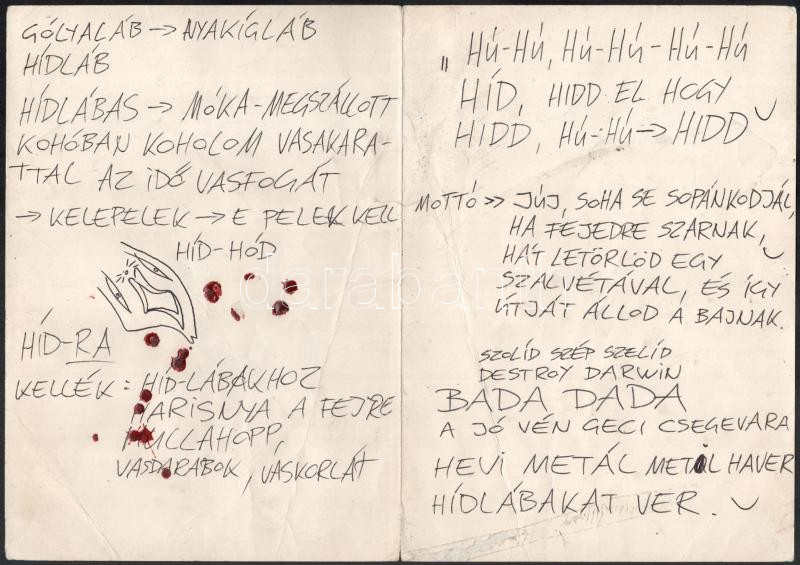 GÓLYALÁB → NYAKÍGLÁB
HÍDLÁB
HÍDLÁBAS → MÓKA-MEGSZÁLLOTT
KOHÓBAN KOHOLOM VASAKARA-
TTAL AZ IDŐ VASFOGÁT
→ KELEPELEK → E PELEK KELL
HÍD-HÓD
HÍD-RA
KELLÉK: HÍD-LÁBAKHOZ
HARISNYA A FEJRE
HULLAHOPP,
VASDARABOK, VASKORLÁT
" HÚ-HÚ, HÚ-HÚ-HÚ-HÚ
HÍD, HIDD EL HOGY
HIDD, HÚ-HÚ → HIDD
MOTTÓ >> JÚJ, SOHA SE SOPÁNKODJÁL,
HA FEJEDRE SZARNAK,
HÁT LETÖRLÖD EGY
SZALVÉTÁVAL, ÉS ÍGY
ÚTJÁT ÁLLOD A BAJNAK.
SZOLÍD SZÉP SZELÍD
DESTROY DARWIN
BADA DADA
A JÓ VÉN GECI CSEGEVARA
HEVI METÁL METÁL HAVER
HÍDLÁBAKAT VER.
darabanth